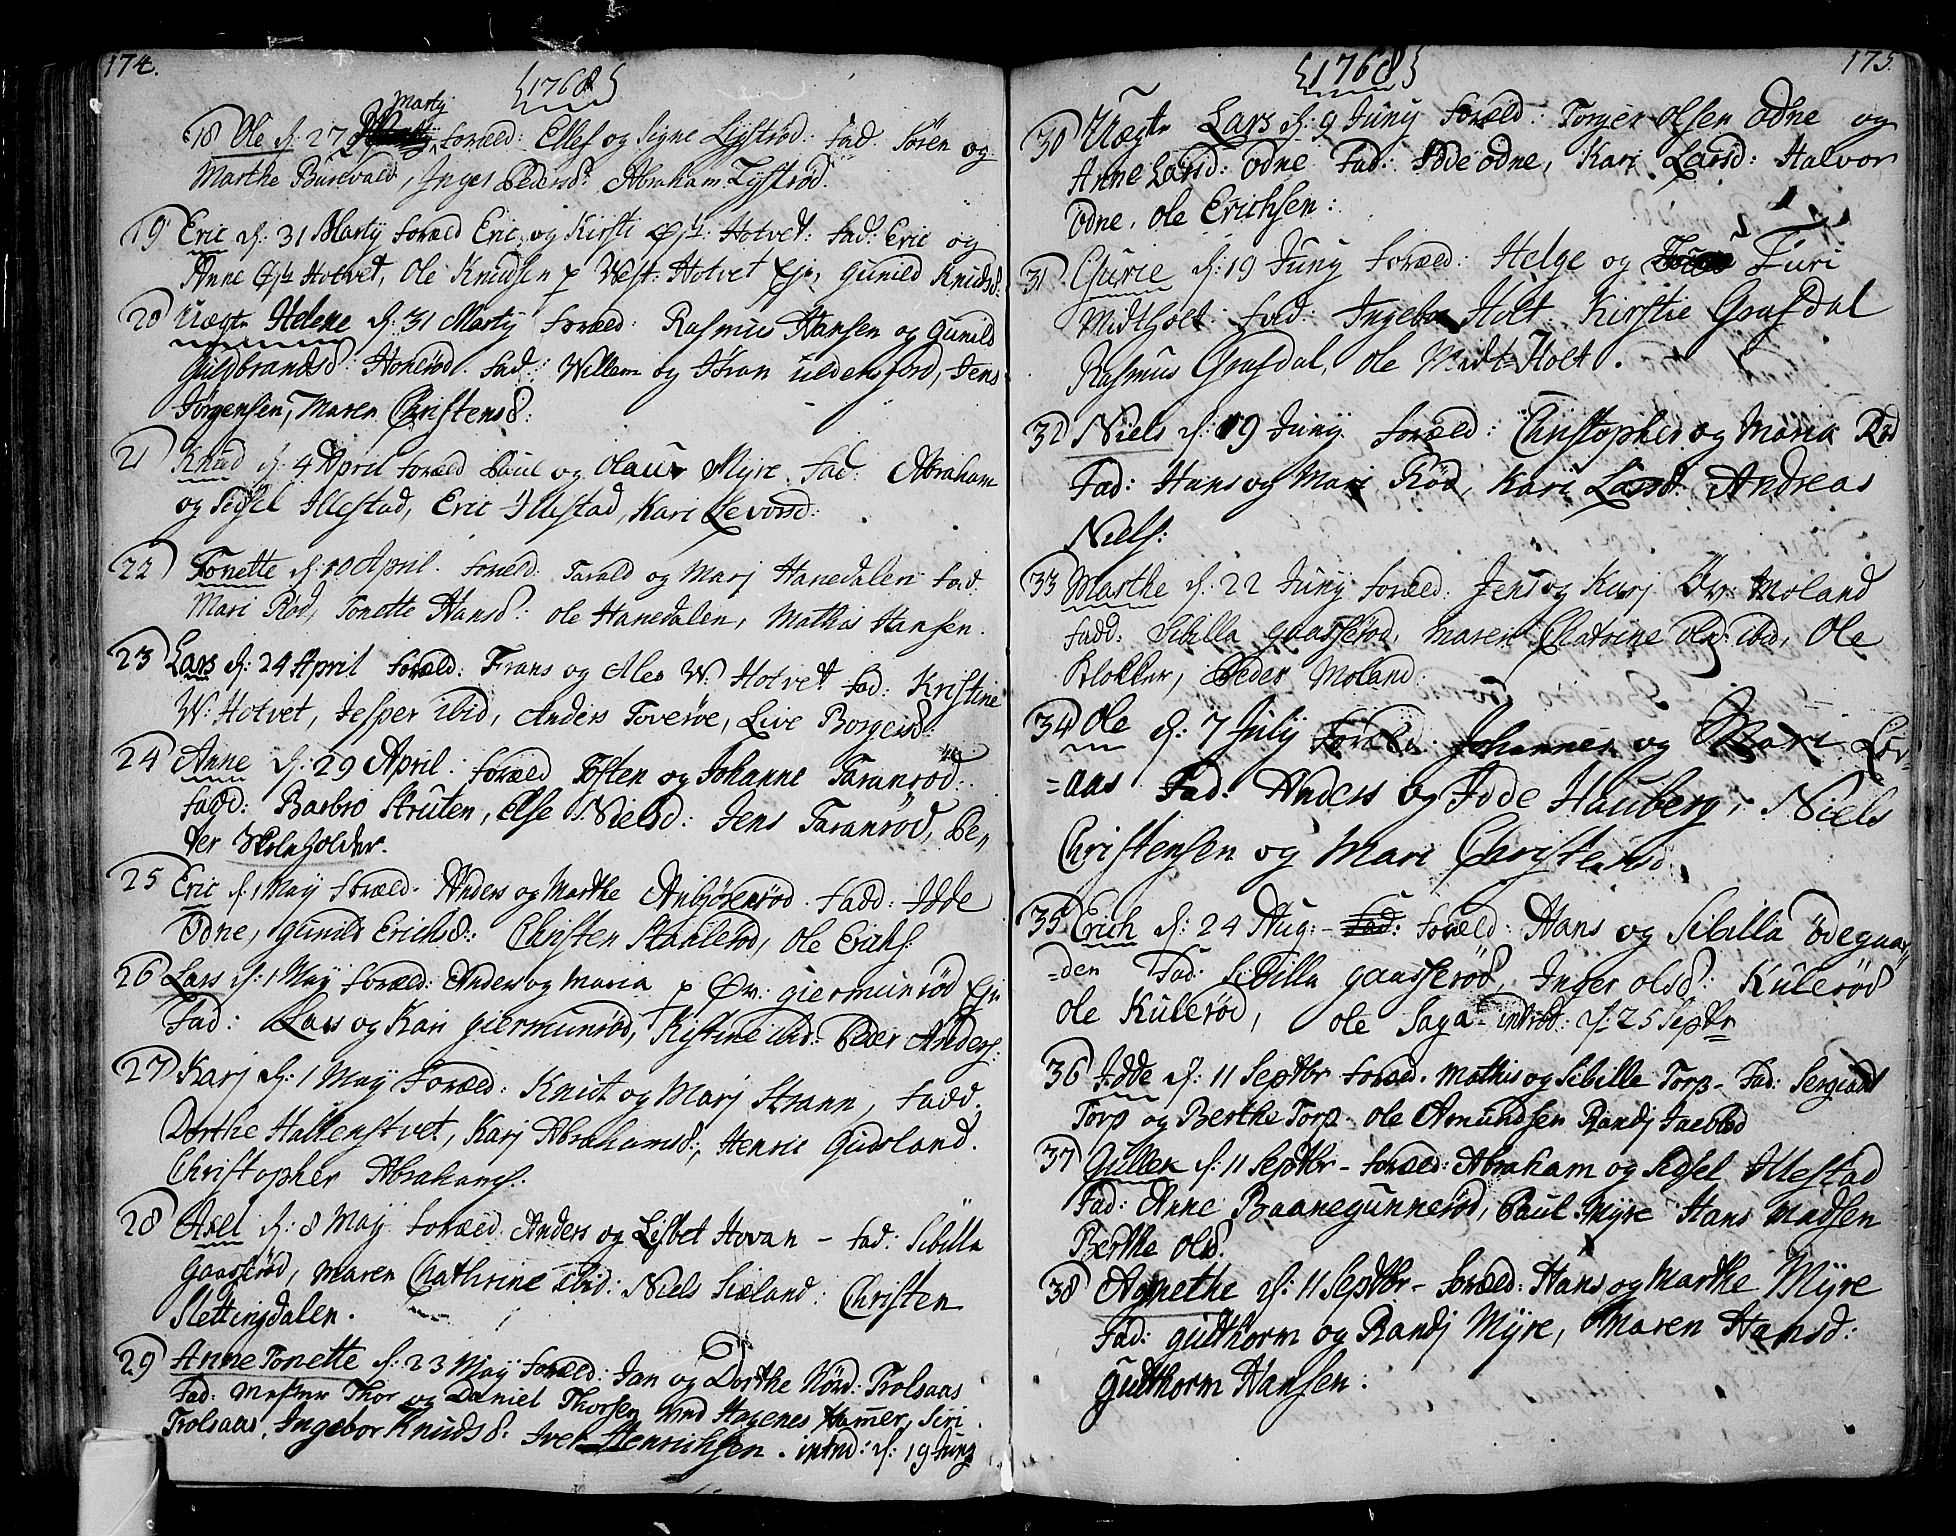 174.
{1768}
Marty
18 Ole d: 27 foræld: Ellef og Signe Lystrød: fad. Sören og
Marthe Burevald, Inger Pedersd: Abraham Lystrød.
19 Eric d: 31 Marty foræld Eric og Kirsti Øst: Hotvet: fad: Eric og
Anne Øst: Hotvet, Ole Knudsen p West: Hotvet Eje, Gunild Knudsd:
20 Uægte Helene d: 31 Marty foræld: Rasmus Hansen og Gunild
Guldbrandsd Honerød. fad: Willem og Jøran Uldensford, Jens
Jørgensen, Maren Christensd:
21 Knud d: 4 April foræld Paul og Olaug Myre fad: Abraham
og Sidsel Illestad, Eric Illestad, Kari Levorsd:
22 Tonette d: 10 April. foræld: Tarald og Marj Hanedalen fad.
Mari Rød, Tonette Hansd: Ole Hanedalen, Mathis Hansen.
23 Lars d: 24 April foræld: Frans og Ales W: Hotvet fad: Kristine
W: Hotvet, Jesper ibid, Anders Toverøe, Live Borgersd:
24 Anne d: 29 April: foræld Tosten og Johanne Taranrød:
fadd: Barbro Struten, Else Nielsd: Jens Taranrød, Pe,,
der Skoleholder.
25 Eric d: 1 May foræld: Anders og Marthe Anbjörnrød. fadd: Idde
Odne, Gunild Erichsd: Christen Staalerød, Ole Erichs:
26 Lars d: 1 May foræld: Anders og Maria p Øv: Giermunrød Eje
Fad: Lars og Kari Giermunrød, Kistine ibid: Peder Anders:
27 Karj d: 1 May foræld: Knut og Marj Strann, fadd.
Dorthe Hallenstvet, Karj Abrahamsd:, Henric Gusland.
Christopher Abrahams:
28 Axel d: 8 May foræld Anders og Lisbet Hovan – fad: Sibilla
Gaasserød, Maren Chathrine ibid: Niels Siæland: Christen
Slettingdalen.
29 Anne Tonette d: 23 May foræld: Jan og Dorthe Nord: Trolsaas
Fad: Mester Thor og Daniel Thorsen ved Hagenes Hamer, Siri
Trolsaas, Ingebor Knudsd: Iver Henrichsen. introd: d: 19 Juny
{1768}
175.
30 Uægte Lars d: 9 Juny foræld: Torger Olsen Odne og
Anne Larsd: Odne fad: Idde Odne, Kari Larsd: Halvor
Odne, Ole Erichsen:
31 Gurie d: 19 Juny foræld: Helge og Turi
Midtholt: fad: Ingebor Holt Kirstie Grafdal
Rasmus Grafdal, Ole Midt-Holt.
32 Niels d: 19 Juny foræld: Christopher og Maria Rød
Fad: Hans og Mari Rød, Kari Larsd: Andreas
Niels:
33 Marthe d: 22 Juny foræld: Jens og Karj Øv: Moland
fadd: Sibilla Gaasserød, Maren Chatrine Olsd: ibid, Ole
Klokker, Peder Moland:
34 Ole d: 7 July foræld: Johannes og Mari Lør-
=aas Fad: Anders og Idde Hauberg, Niels
Christensen og Mari Christensd:
35 Erich d: 24 Aug: – fad: foræld: Hans og Sibilla Ödegaar,,
=den Fad: Sibilla Gaasserød, Inger Olsd: Kulerød
Ole Kulerød, Ole Saga – introd: d: 25 Septbr
36 Idde d: 11 Septbr foræld. Mathis og Sibille Torp – Fad:
Torp og Berthe Torp – Ole Amundsen Randj
37 Gullek d: 11 Septbr – foræld: Abraham og Sidsel Illestad
Fad: Anne Baanegunnerød, Paul Myre Hans Madsen
Berthe Olsd:
38 Agnethe d: 11 Septbr – foræld: Hans og Marthe Myre
Fad: Gudthorm og Randj Myre, Maren Hansd:
Gudthorm Hansen: